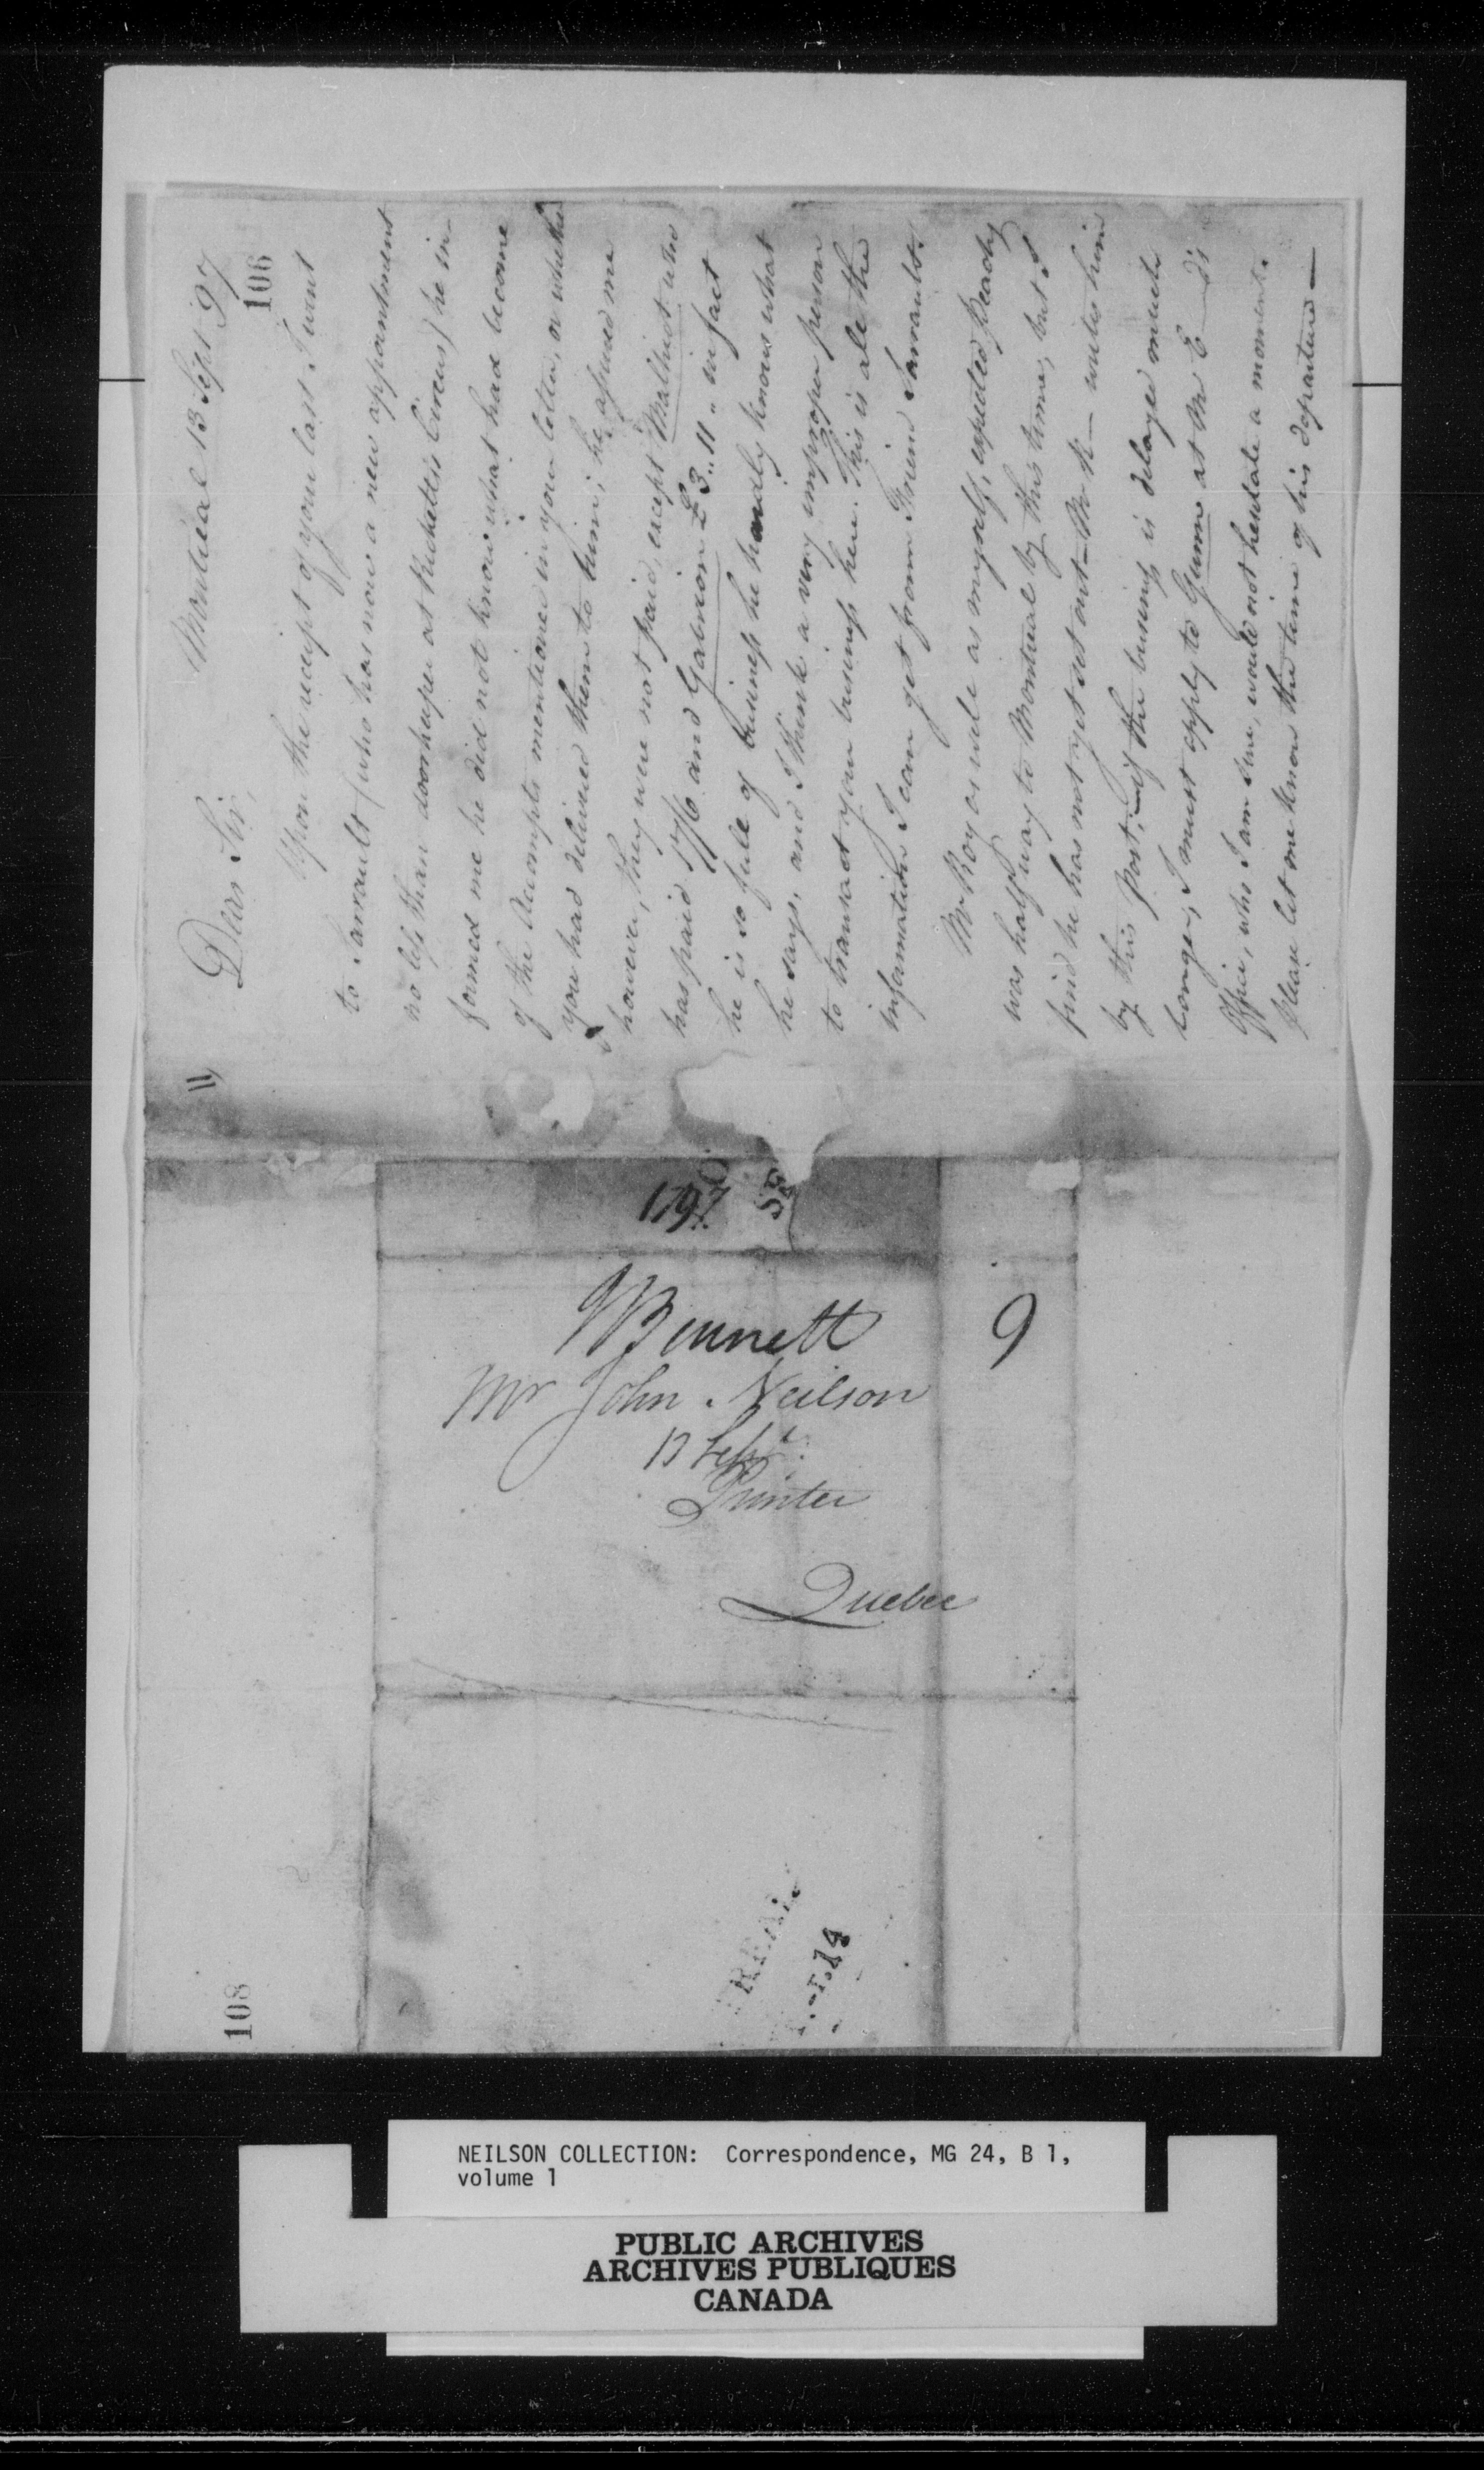 Montreal 13 Sept 97
106
Dear Sir,
Upon the receipt of your last I went
to Sarrault (who has now a new appointment
no less than doorkeeper at Ricketts Circus) he in-
formed me he did not know what had become
of the Accompts mentioned in your letter, or whether
you had delivered them to him; he assured me
however, they were not paid, except Malhiot who
has paid 17/6 and Gabrion £3..11.. in fact
he is so full of business he hardly knows what
he says, and I think a very improper person
to transact your business here. This is all the
information I can get from Friend Sarrault.
Mr Roy as well as myself, expected Peachy
was half way to Montreal by this time, but I
find he has not yet set out — Mr R— writes him
by this Post; if the business is delayed much
longer, I must apply to Gunn at Mr E—d's
Office, who I am sure, would not hesitate a moment.
Please let me know the time of his departure —
11
1797
SE
JBennett
9
Mr John Neilson
13 Sept.
Printer
Quebec
REAL
14
108
NEILSON COLLECTION: Correspondence, MG 24, B 1,
volume 1
PUBLIC ARCHIVES
ARCHIVES PUBLIQUES
CANADA